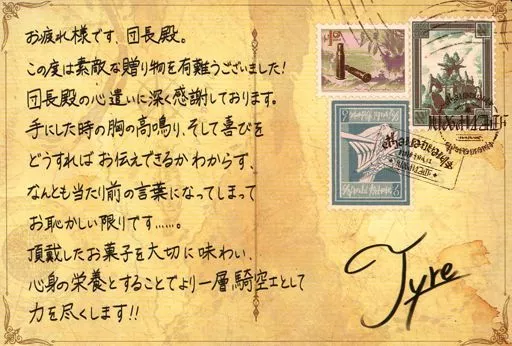 お疲れ様です、団長殿。
この度は素敵な贈り物を有難うございました!
団長殿の心遣いに深く感謝しております。
手にした時の胸の高鳴り、そして喜びを
どうすればお伝えできるかわからず、
なんとも当たり前の言葉になってしまって
お恥かしい限りです……。
頂戴したお菓子を大切に味わい、
心身の栄養とすることでより一層、騎空士として
力を尽くします!!
Tyre